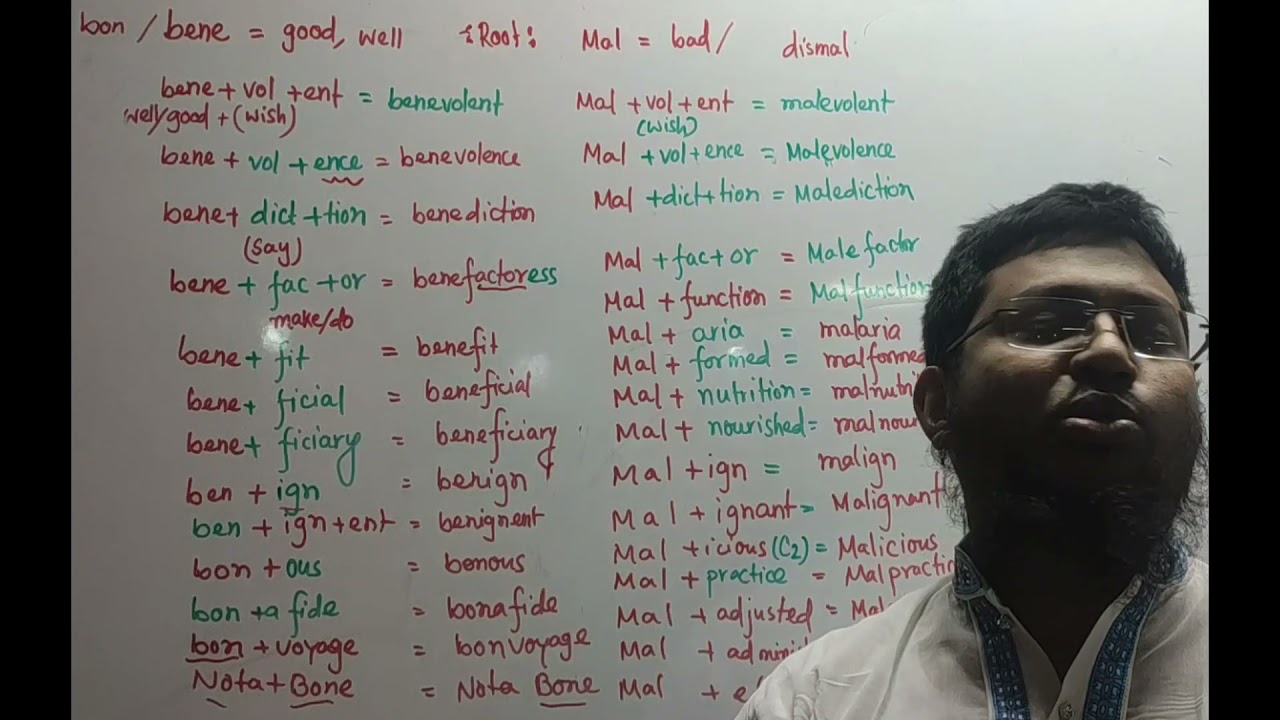 bon / bene = good, well {Root: Mal = bad/ dismal
bene + vol + ent = benevolent
well/good + (wish)
bene + vol + ence = benevolence
bene + dict + tion = benediction
(say)
bene + fac + or = benefactoress
make/do
bene + fit = benefit
bene + ficial = beneficial
bene + ficiary = beneficiary
ben + ign = benign
ben + ign + ent = benignent
bon + ous = bonous
bon + a fide = bonafide
bon + voyage = bonvoyage
Nota + Bone = Nota Bone
Mal + vol + ent = malevolent
(wish)
Mal + vol + ence = Malevolence
Mal + dict + tion = Malediction
Mal + fac + or = Malefactor
Mal + function = Malfunction
Mal + aria = malaria
Mal + formed = malformed
Mal + nutrition = malnutri
Mal + nourished = malnou
Mal + ign = malign
Mal + ignant = Malignant
Mal + icious (C2) = Malicious
Mal + practice = Malpractic
Mal + adjusted = Mal
Mal + admini
Mal +